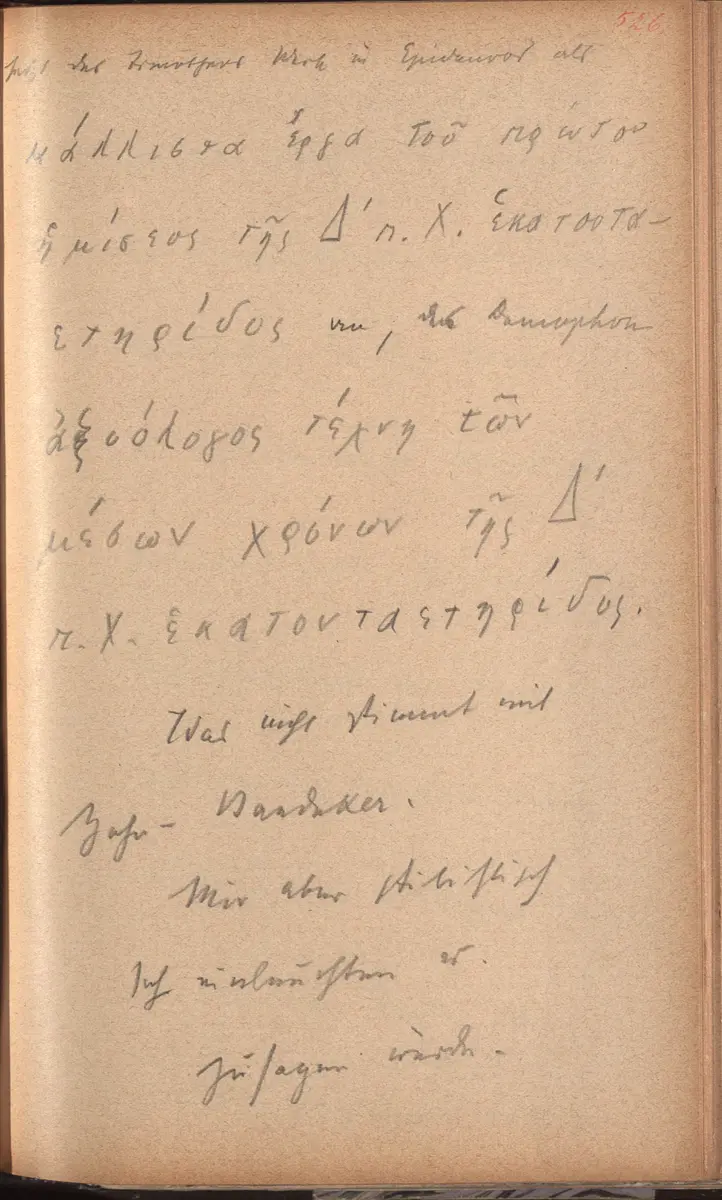 526
setzt des Timotheos Werk in Epidauros als
κάλλιστα ἔργα τοῦ πρώτου
ἡμίσεος τῆς Δ' π. Χ. ἑκατοστα-
ετηρίδος an, des Damophon
ἀξιόλογος τέχνη τῶν
μέσων χρόνων τῆς Δ'
π. Χ. ἑκατονταετηρίδος.
Was nicht stimmt mit
Zahn- Baedeker.
Mir aber stilistisch
sich einleuchten u.
zusagen würde.